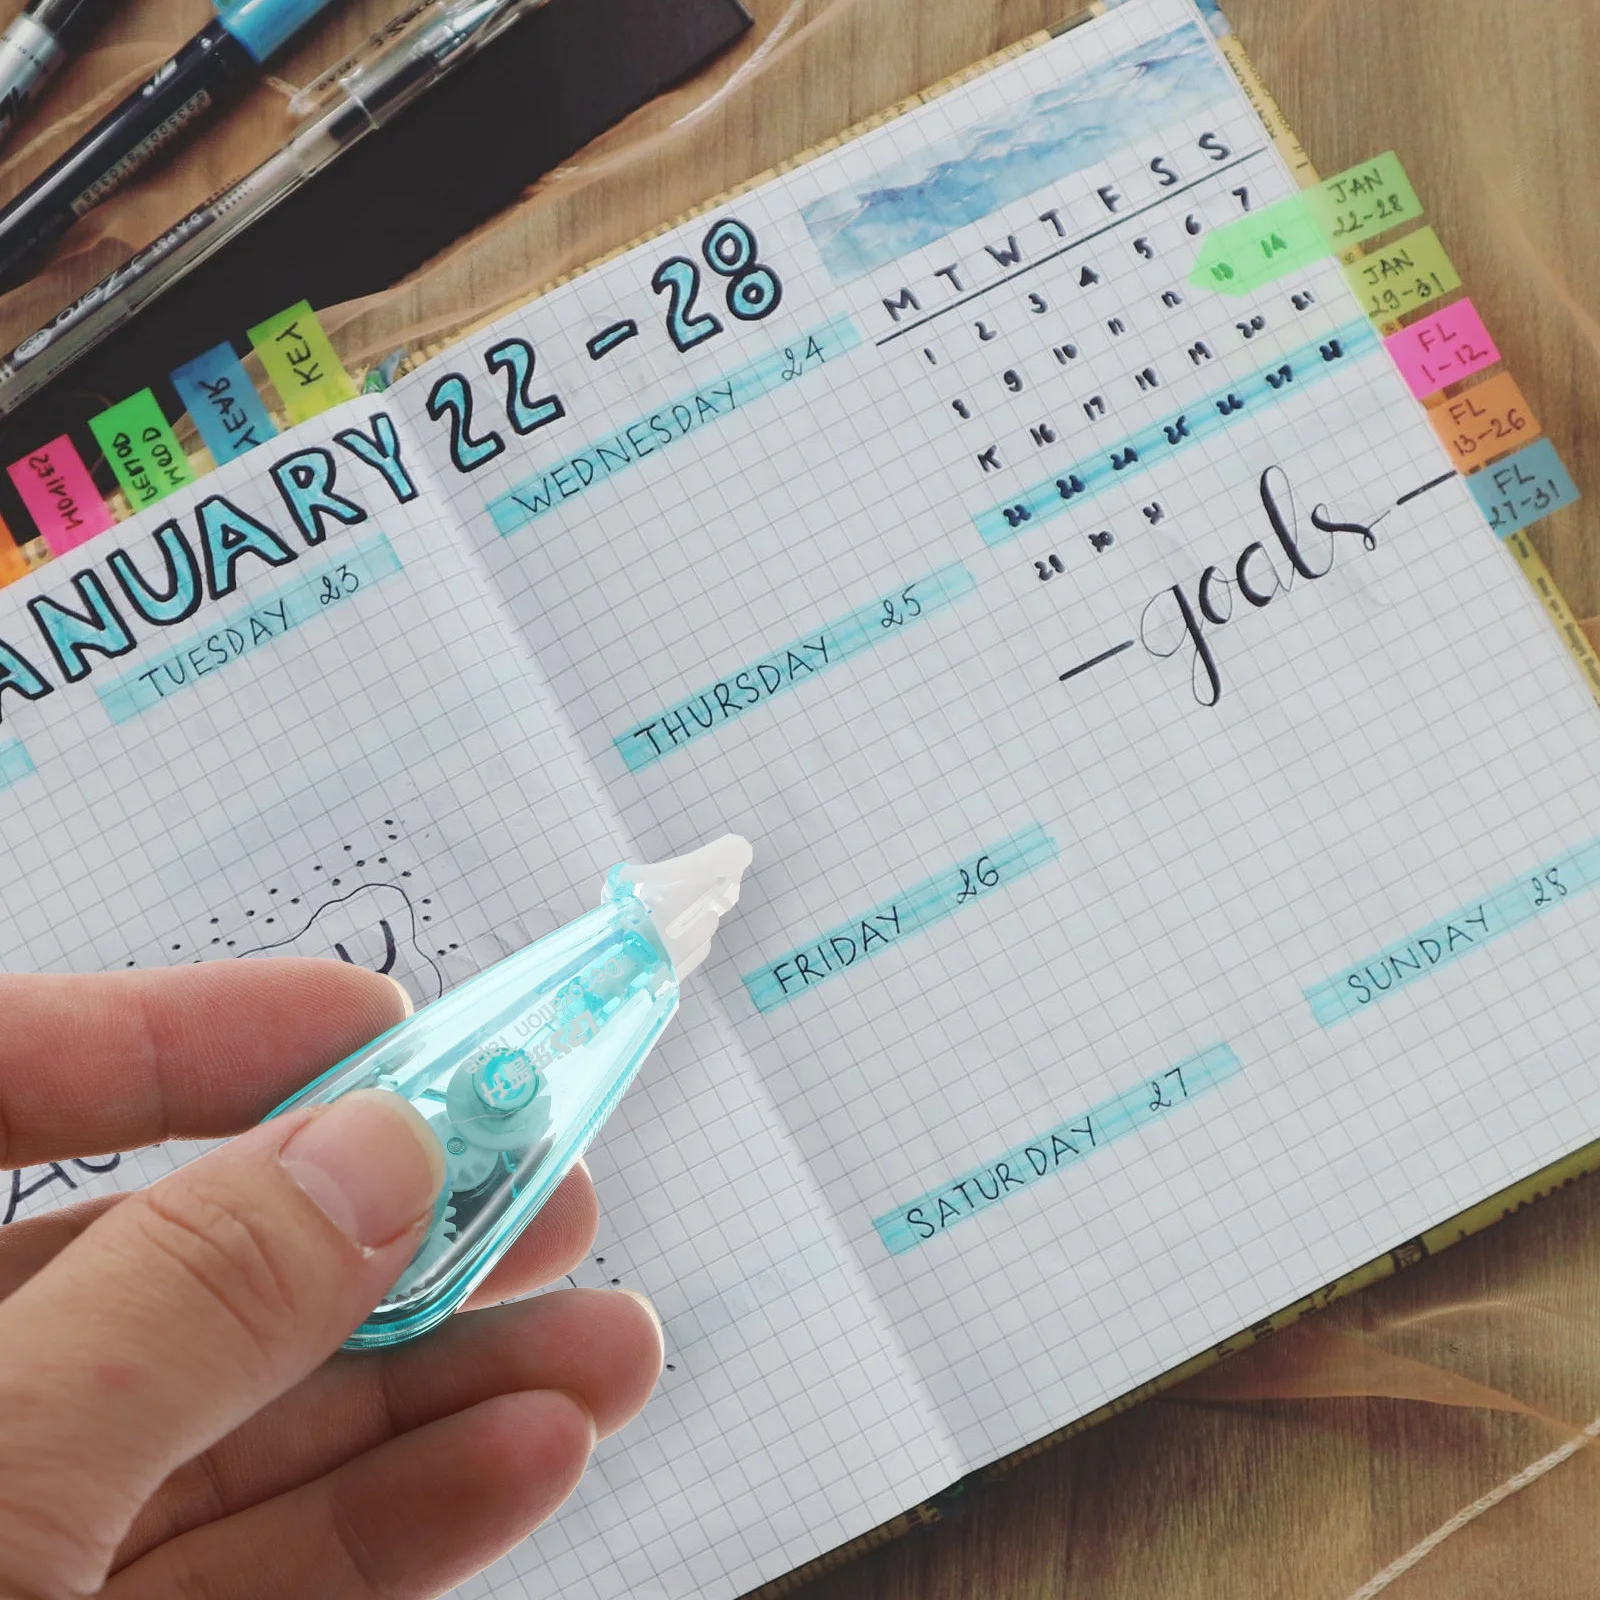 ANUARY 22-28
TUESDAY 23
WEDNESDAY 24
THURSDAY 25
FRIDAY 26
SATURDAY 27
SUNDAY 28
M T W T F S S
1 2 3 4 5 6 7
8 9 10 11 12 13 14
15 16 17 18 19 20 21
22 23 24 25 26 27 28
29 30 31
-goals-
MOVIES
PERIOD
MOOD
YEAR
KEY
JAN
22-28
JAN
29-31
FL
1-12
FL
13-26
FL
27-31
Correction Tape
Zero